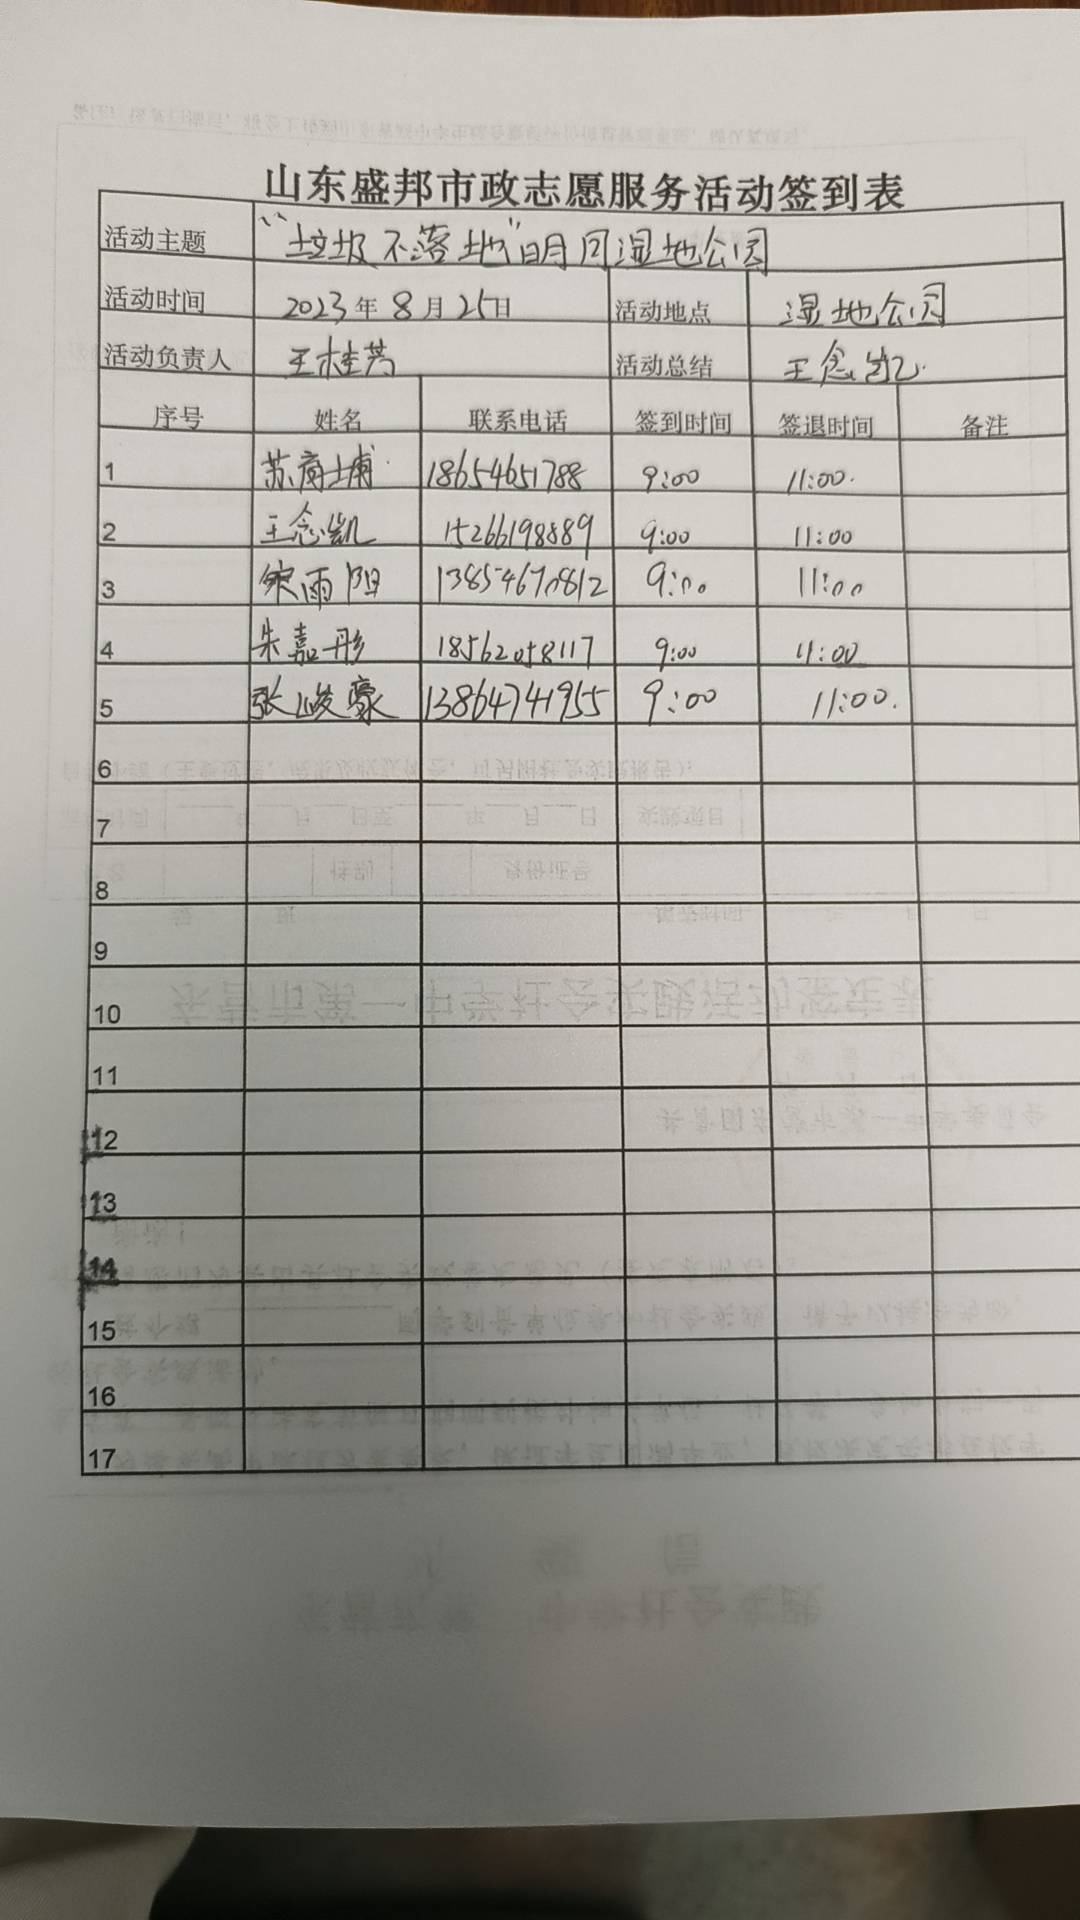 山东盛邦市政志愿服务活动签到表
活动主题 “垃圾不落地”明月湿地公园
活动时间 2023年8月25日 活动地点 湿地公园
活动负责人 王桂芳 活动总结 王念凯
序号 姓名 联系电话 签到时间 签退时间 备注
1 苏商埔 18654651788 9:00 11:00.
2 王念凯 15266198889 9:00 11:00
3 雨阳 13854670812 9:00 11:00
4 朱嘉彤 18562058117 9:00 11:00
5 张峻豪 13864741955 9:00 11:00.
6
7
8
9
10
11
12
13
14
15
16
17